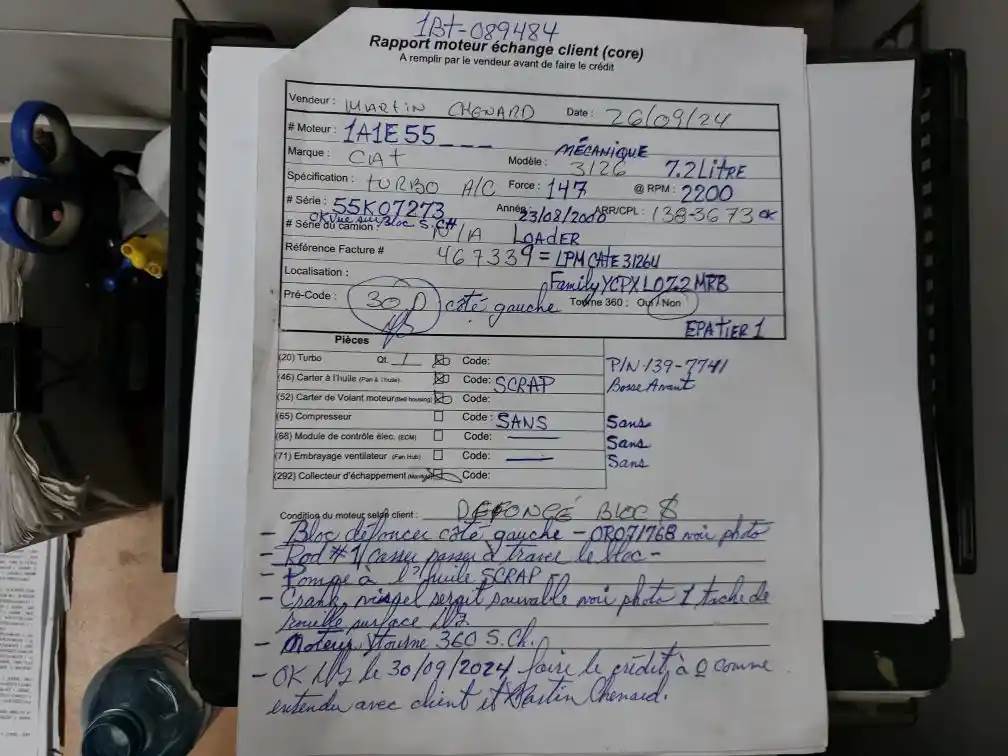 1Bt-089484
Rapport moteur échange client (core)
A remplir par le vendeur avant de faire le crédit
Vendeur : MARTIN CHENARD Date : 26/09/24
# Moteur : 1A1E55_ _ _ MÉCANIQUE
Marque : CAT Modèle : 3126 7.2 LITRE
Spécification : TURBO A/C Force : 147 @ RPM : 2200
# Série : 55K07273 Année : 23/08/2000 ARR/CPL : 138-3673 OK
OK Vue sur Bloc S.CH
# Série du camion : N/A LOADER
Référence Facture # 467339 = LPM CATE 3126U
Localisation : Family YCPXL07.2MRB
Pré-Code : 300 côté gauche Tourne 360 : Oui / Non
EPA TIER 1
Pièces
(20) Turbo Qt. 1 Code: P/N 139-7741
(46) Carter à l'huile (Pan à l'huile) Code: SCRAP Bosse Avant
(52) Carter de Volant moteur (Bell housing) Code:
(65) Compresseur Code : SANS Sans
(68) Module de contrôle élec. (ECM) Code: Sans
(71) Embrayage ventilateur (Fan Hub) Code: Sans
(292) Collecteur d'échappement Code:
Condition du moteur selon client : DEFONCÉ BLOC $
- Bloc défoncer côté gauche - 0R07176B voir photo
- Rod #1 casser passer à traver le bloc -
- Pompe à l'huile SCRAP -
- Crank serait sauvable voir photo 1 tache de
rouille surface
- Moteur tourne 360 S.Ch.
- OK le 30/09/2024 faire le crédit à 0 comme
entendu avec client et Martin Chenard.